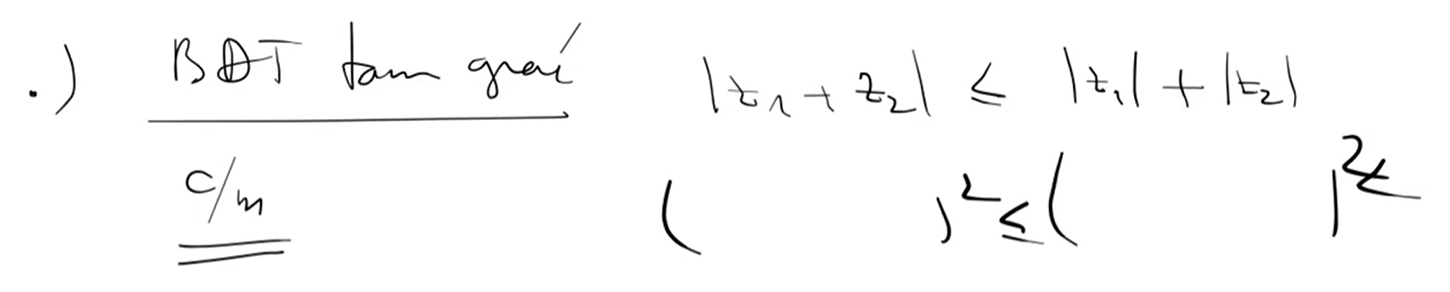 .) BĐT tam giác |z₁ + z₂| ≤ |z₁| + |z₂|
c/m ( )² ≤ ( )²